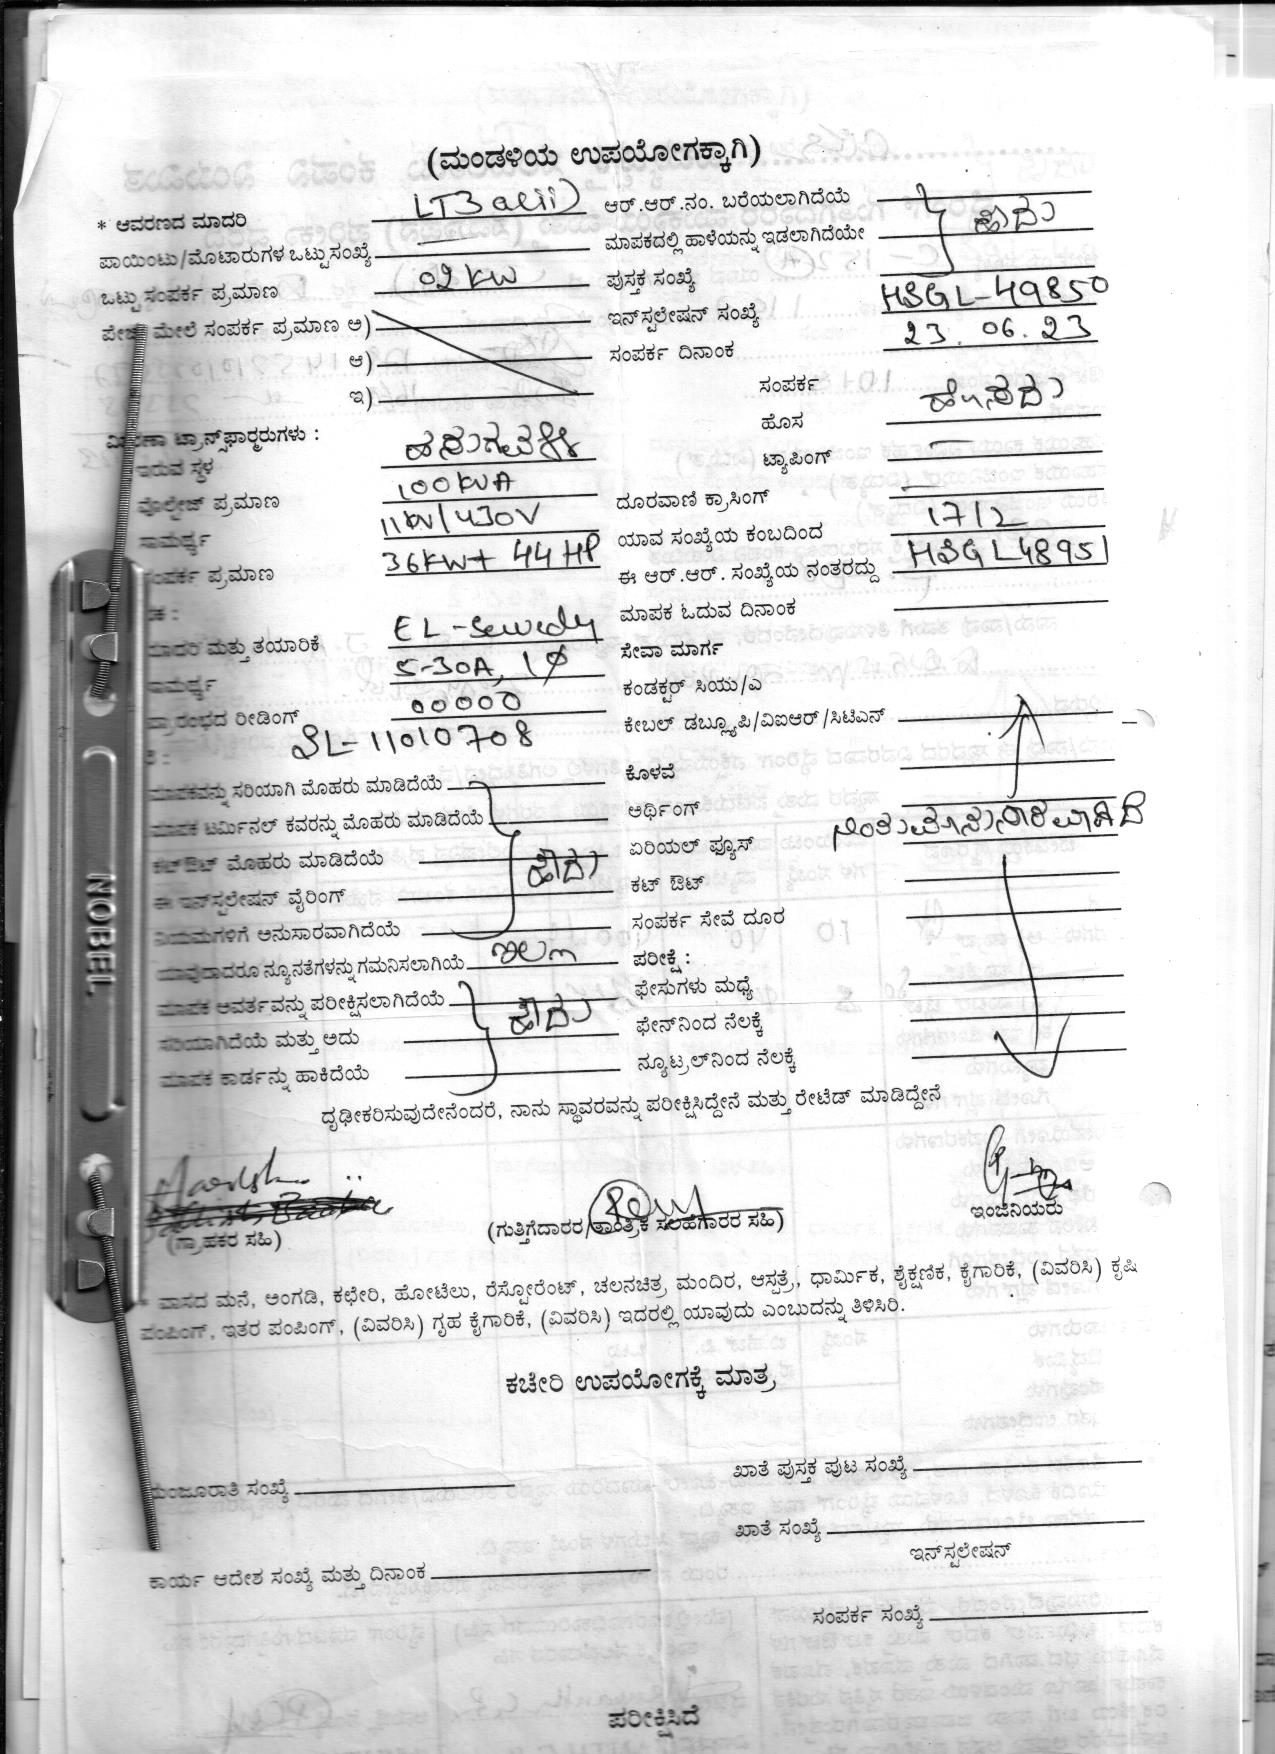 (ಮಂಡಳಿಯ ಉಪಯೋಗಕ್ಕಾಗಿ)
* ಆವರಣದ ಮಾದರಿ LT3 a(ii)
ಪಾಯಿಂಟು/ಮೊಟಾರುಗಳ ಒಟ್ಟು ಸಂಖ್ಯೆ
ಒಟ್ಟು ಸಂಪರ್ಕ ಪ್ರಮಾಣ 02 KW
ಪೇಜ್ ಮೇಲೆ ಸಂಪರ್ಕ ಪ್ರಮಾಣ ಅ)
ಆ)
ಇ)
ಟ್ರಾನ್ಸ್‌ಫಾರ್‍ಮರುಗಳು :
ಇರುವ ಸ್ಥಳ
ವೊಲ್ಟೇಜ್ ಪ್ರಮಾಣ 100KVA
ಸಾಮರ್ಥ್ಯ 11KV/430V
ಸಂಪರ್ಕ ಪ್ರಮಾಣ 36KW+ 44 HP
ಮಾದರಿ ಮತ್ತು ತಯಾರಿಕೆ EL-Sewedy
ಸಾಮರ್ಥ್ಯ 5-30A, 1Ø
ಪ್ರಾರಂಭದ ರೀಡಿಂಗ್ 00000
SL-11010708
ಮಾಪಕವನ್ನು ಸರಿಯಾಗಿ ಮೊಹರು ಮಾಡಿದೆಯೆ
ಮಾಪಕ ಟರ್ಮಿನಲ್ ಕವರನ್ನು ಮೊಹರು ಮಾಡಿದೆಯೆ
ಕಟ್‌ಔಟ್ ಮೊಹರು ಮಾಡಿದೆಯೆ ಹೌದು
ಈ ಇನ್‌ಸ್ಟಲೇಷನ್ ವೈರಿಂಗ್
ನಿಯಮಗಳಿಗೆ ಅನುಸಾರವಾಗಿದೆಯೆ
ಯಾವುದಾದರೂ ನ್ಯೂನತೆಗಳನ್ನು ಗಮನಿಸಲಾಗಿಯೆ ಇಲ್ಲ
ಮಾಪಕ ಆವರ್ತವನ್ನು ಪರೀಕ್ಷಿಸಲಾಗಿದೆಯೆ
ಸರಿಯಾಗಿದೆಯೆ ಮತ್ತು ಅದು ಹೌದು
ಮಾಪಕ ಕಾರ್ಡನ್ನು ಹಾಕಿದೆಯೆ
ಆರ್.ಆರ್.ನಂ. ಬರೆಯಲಾಗಿದೆಯೆ ಹೌದು
ಮಾಪಕದಲ್ಲಿ ಹಾಳೆಯನ್ನು ಇಡಲಾಗಿದೆಯೇ
ಪುಸ್ತಕ ಸಂಖ್ಯೆ
ಇನ್‌ಸ್ಟಲೇಷನ್ ಸಂಖ್ಯೆ HSGL-49850
ಸಂಪರ್ಕ ದಿನಾಂಕ 23.06.23
ಸಂಪರ್ಕ
ಹೊಸ ಹೊಸದು
ಟ್ಯಾಪಿಂಗ್
ದೂರವಾಣಿ ಕ್ರಾಸಿಂಗ್
ಯಾವ ಸಂಖ್ಯೆಯ ಕಂಬದಿಂದ 17/2
ಈ ಆರ್.ಆರ್. ಸಂಖ್ಯೆಯ ನಂತರದ್ದು HSGL48951
ಮಾಪಕ ಓದುವ ದಿನಾಂಕ
ಸೇವಾ ಮಾರ್ಗ
ಕಂಡಕ್ಟರ್ ಸಿಯು/ಎ
ಕೇಬಲ್ ಡಬ್ಲ್ಯೂಪಿ/ವಿಐಆರ್/ಸಿಟಿಎನ್
ಕೊಳವೆ
ಅರ್ಥಿಂಗ್
ಏರಿಯಲ್ ಫ್ಯೂಸ್
ಕಟ್ ಔಟ್
ಸಂಪರ್ಕ ಸೇವೆ ದೂರ
ಪರೀಕ್ಷೆ :
ಫೇಸುಗಳು ಮಧ್ಯೆ
ಫೇನ್‌ನಿಂದ ನೆಲಕ್ಕೆ
ನ್ಯೂಟ್ರಲ್‌ನಿಂದ ನೆಲಕ್ಕೆ
ದೃಢೀಕರಿಸುವುದೇನೆಂದರೆ, ನಾನು ಸ್ಥಾವರವನ್ನು ಪರೀಕ್ಷಿಸಿದ್ದೇನೆ ಮತ್ತು ರೇಟೆಡ್ ಮಾಡಿದ್ದೇನೆ
(ಗ್ರಾಹಕರ ಸಹಿ)
(ಗುತ್ತಿಗೆದಾರರ/ತಾಂತ್ರಿಕ ಸಲಹೆಗಾರರ ಸಹಿ)
ಇಂಜಿನಿಯರು
* ವಾಸದ ಮನೆ, ಅಂಗಡಿ, ಕಛೇರಿ, ಹೋಟೆಲು, ರೆಸ್ಟೋರೆಂಟ್, ಚಲನಚಿತ್ರ ಮಂದಿರ, ಆಸ್ಪತ್ರೆ, ಧಾರ್ಮಿಕ, ಶೈಕ್ಷಣಿಕ, ಕೈಗಾರಿಕೆ, (ವಿವರಿಸಿ) ಕೃಷಿ
ಪಂಪಿಂಗ್, ಇತರ ಪಂಪಿಂಗ್, (ವಿವರಿಸಿ) ಗೃಹ ಕೈಗಾರಿಕೆ, (ವಿವರಿಸಿ) ಇದರಲ್ಲಿ ಯಾವುದು ಎಂಬುದನ್ನು ತಿಳಿಸಿರಿ.
ಕಚೇರಿ ಉಪಯೋಗಕ್ಕೆ ಮಾತ್ರ
ಮಂಜೂರಾತಿ ಸಂಖ್ಯೆ
ಖಾತೆ ಪುಸ್ತಕ ಪುಟ ಸಂಖ್ಯೆ
ಖಾತೆ ಸಂಖ್ಯೆ
ಇನ್‌ಸ್ಟಲೇಷನ್
ಕಾರ್ಯ ಆದೇಶ ಸಂಖ್ಯೆ ಮತ್ತು ದಿನಾಂಕ
ಸಂಪರ್ಕ ಸಂಖ್ಯೆ
ಪರೀಕ್ಷಿಸಿದೆ
NOBEL